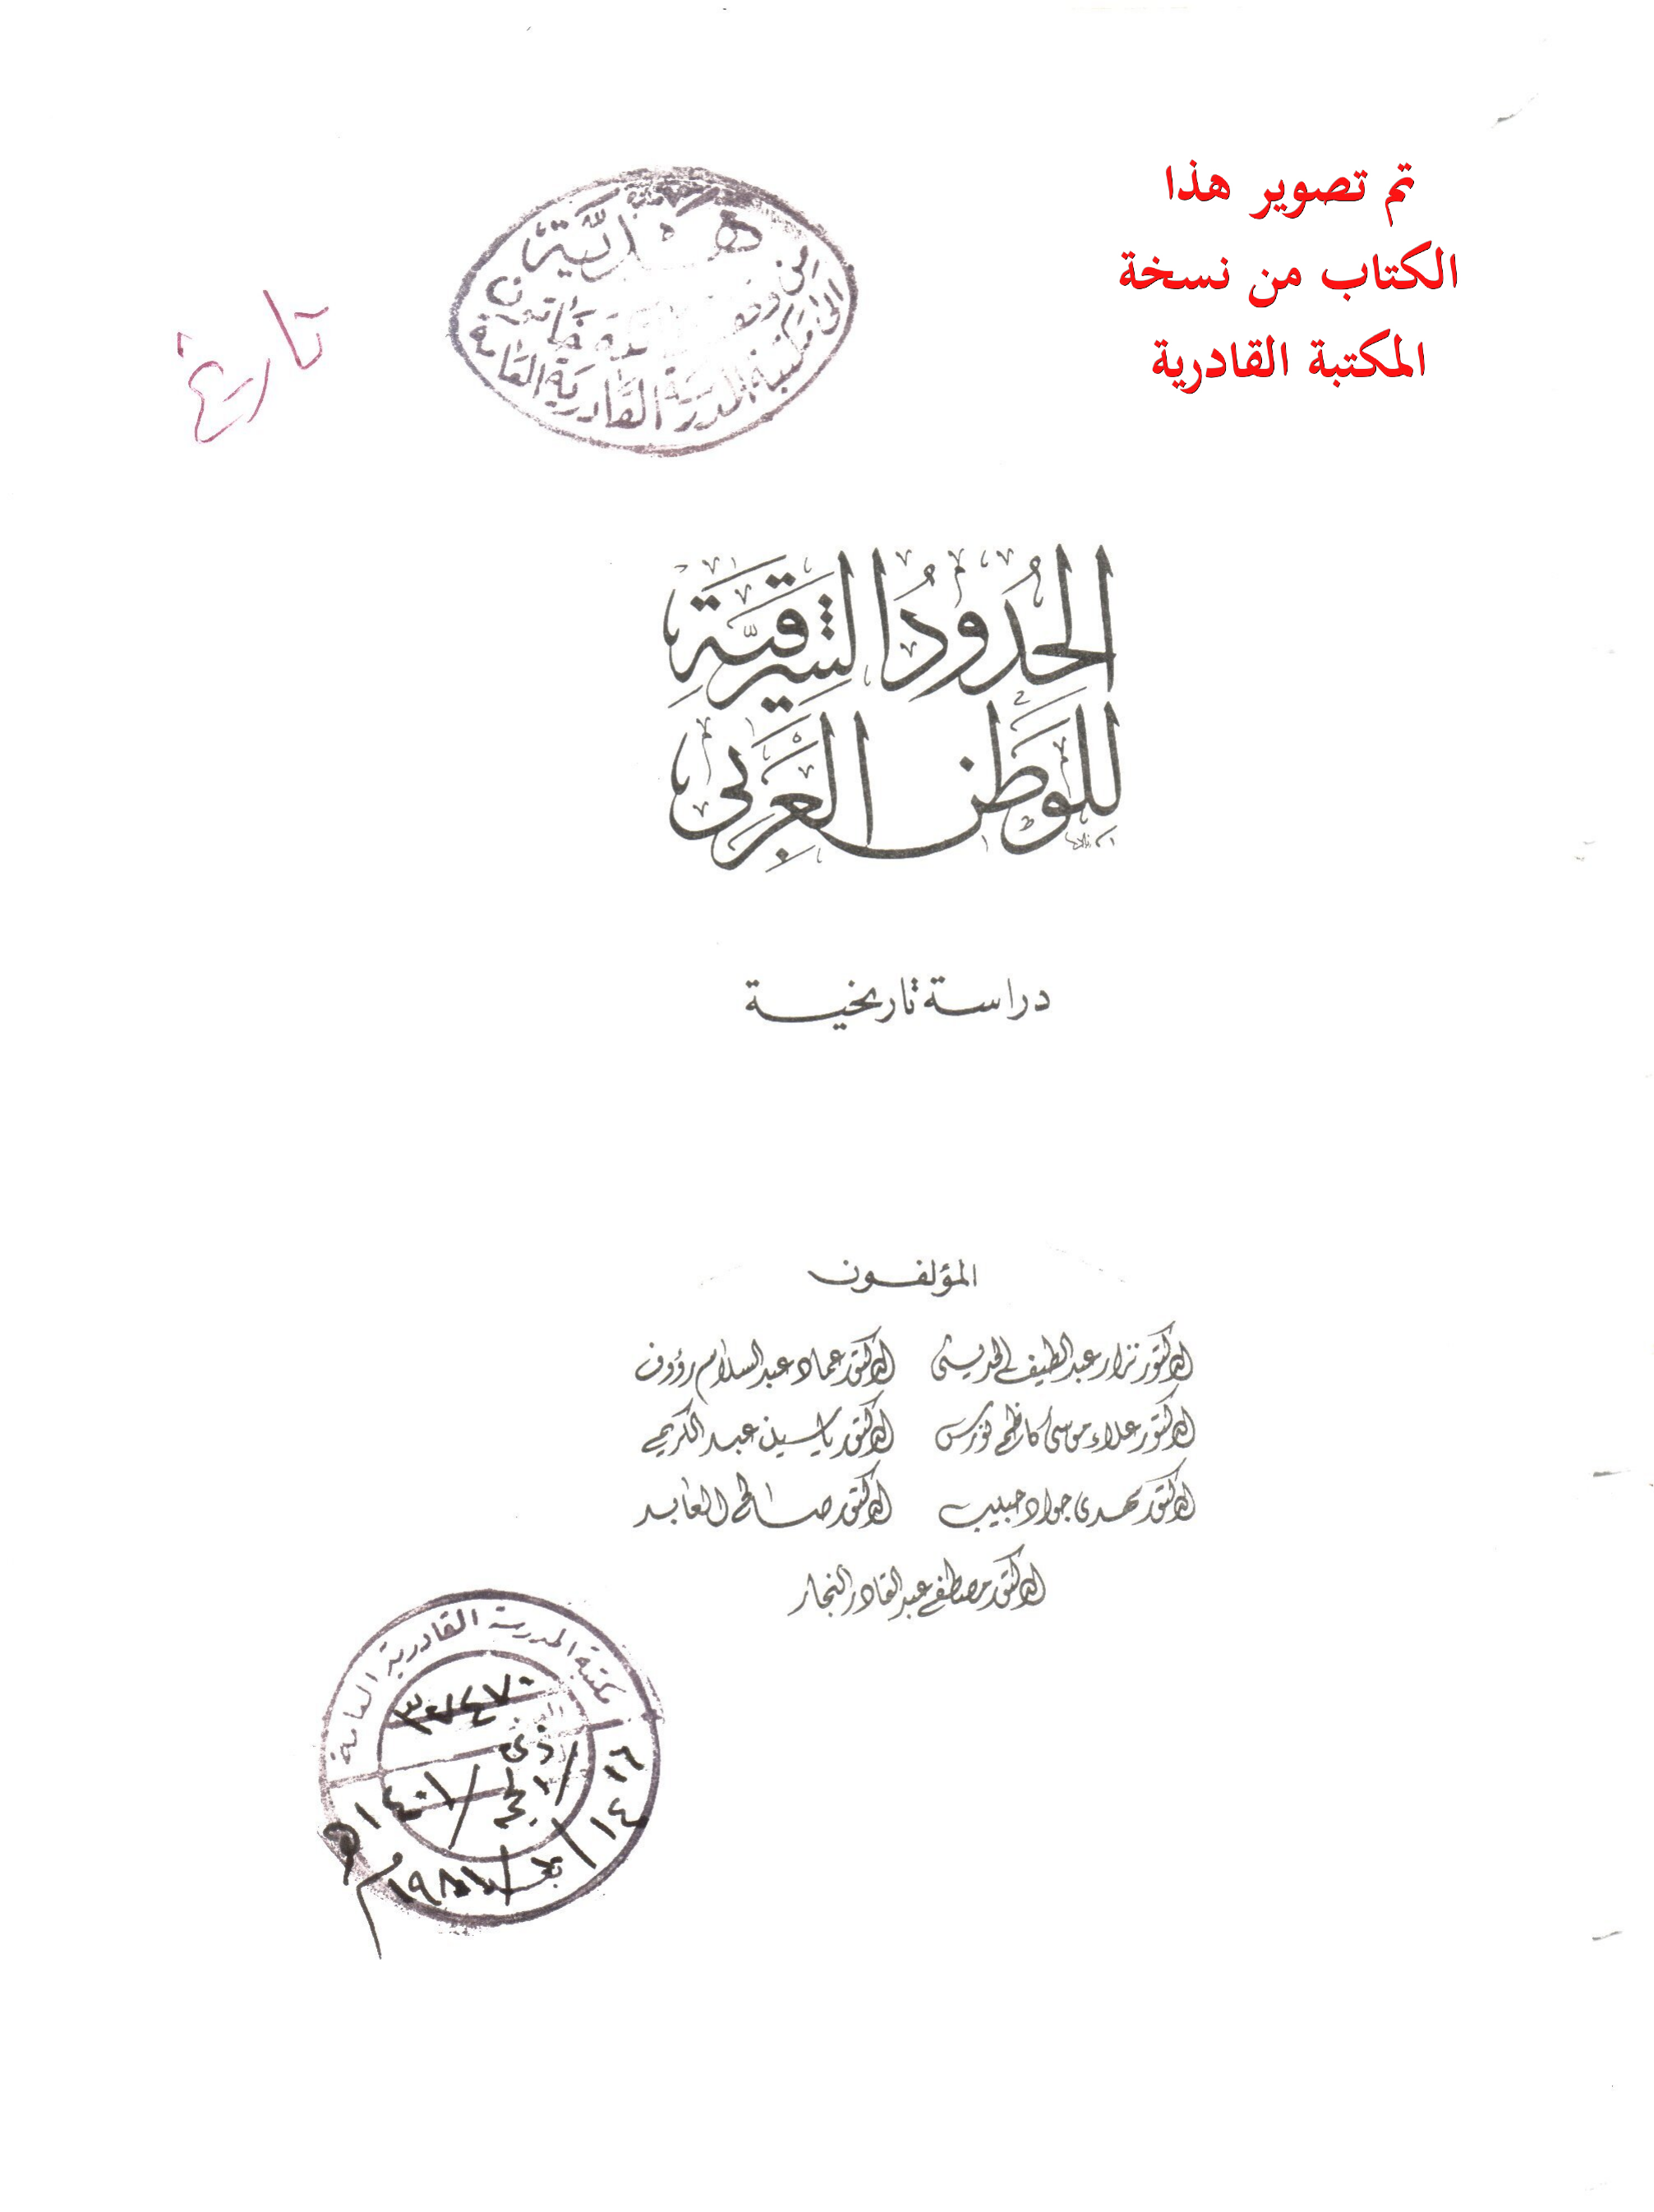 تم تصوير هذا
الكتاب من نسخة
المكتبة القادرية
هدية
الى مكتبة المدرسة القادرية العامة
تاريخ
الحُدُودُ الشرقيَّة
للوَطن العَرَبي
دراسة تاريخية
المؤلفون
الدكتور نزار عبد اللطيف الحديثي الدكتور عماد عبد السلام رؤوف
الدكتور علاء موسى كاظم نورس الدكتور ياسين عبد الكريم
الدكتور مهدي جواد حبيب الدكتور صالح العابد
الدكتور مصطفى عبد القادر النجار
مكتبة المدرسة القادرية العامة